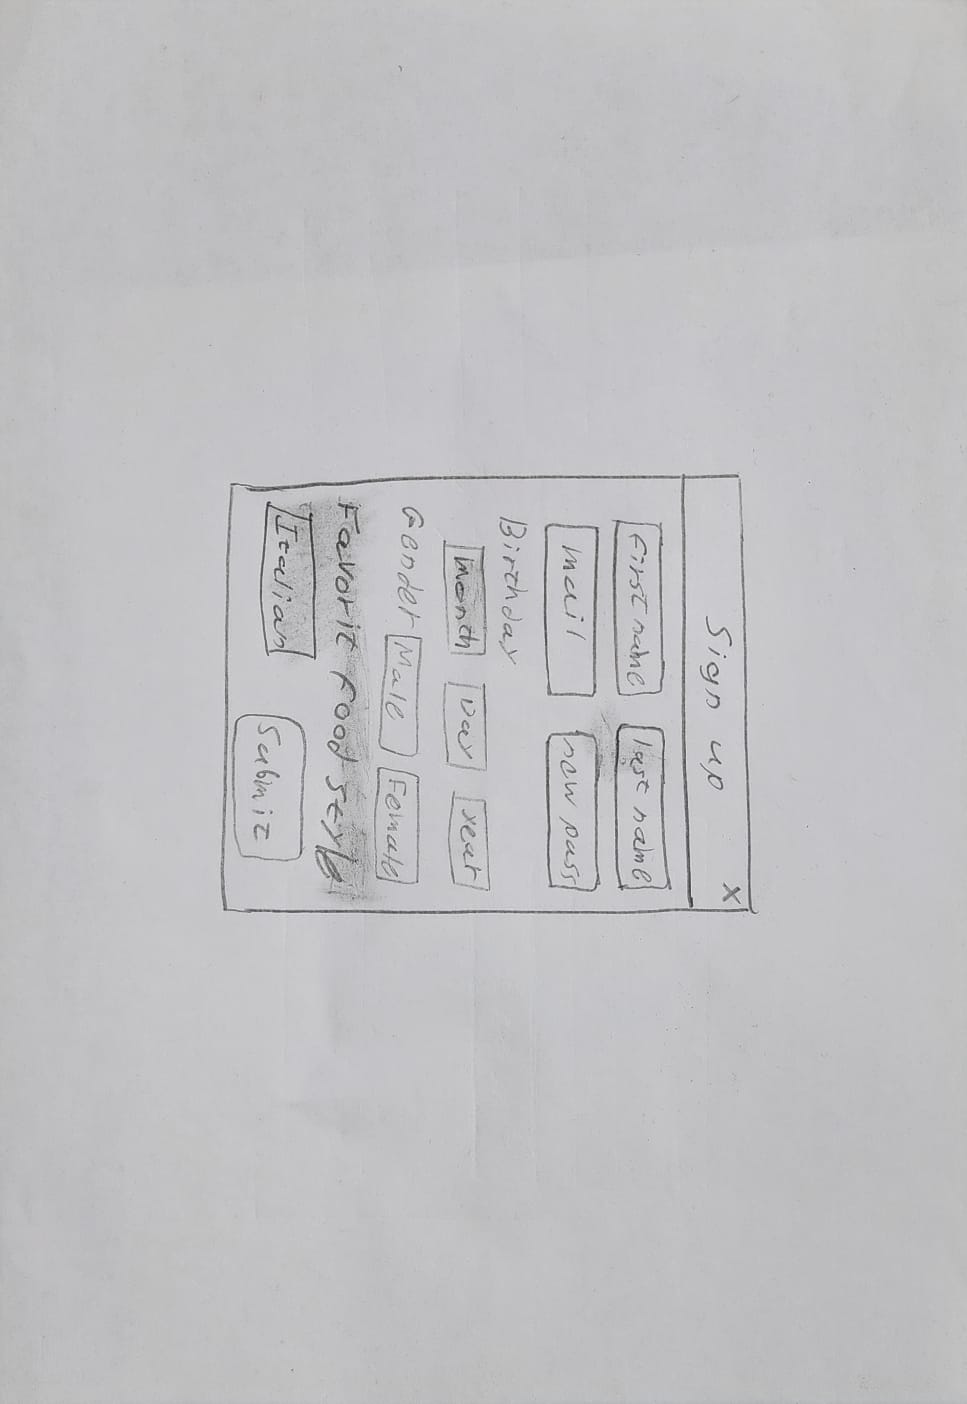 Sign up x
First name last name
mail new pass
Birthday
Month Day year
Gender Male Female
Favorit food style
Italian Submit